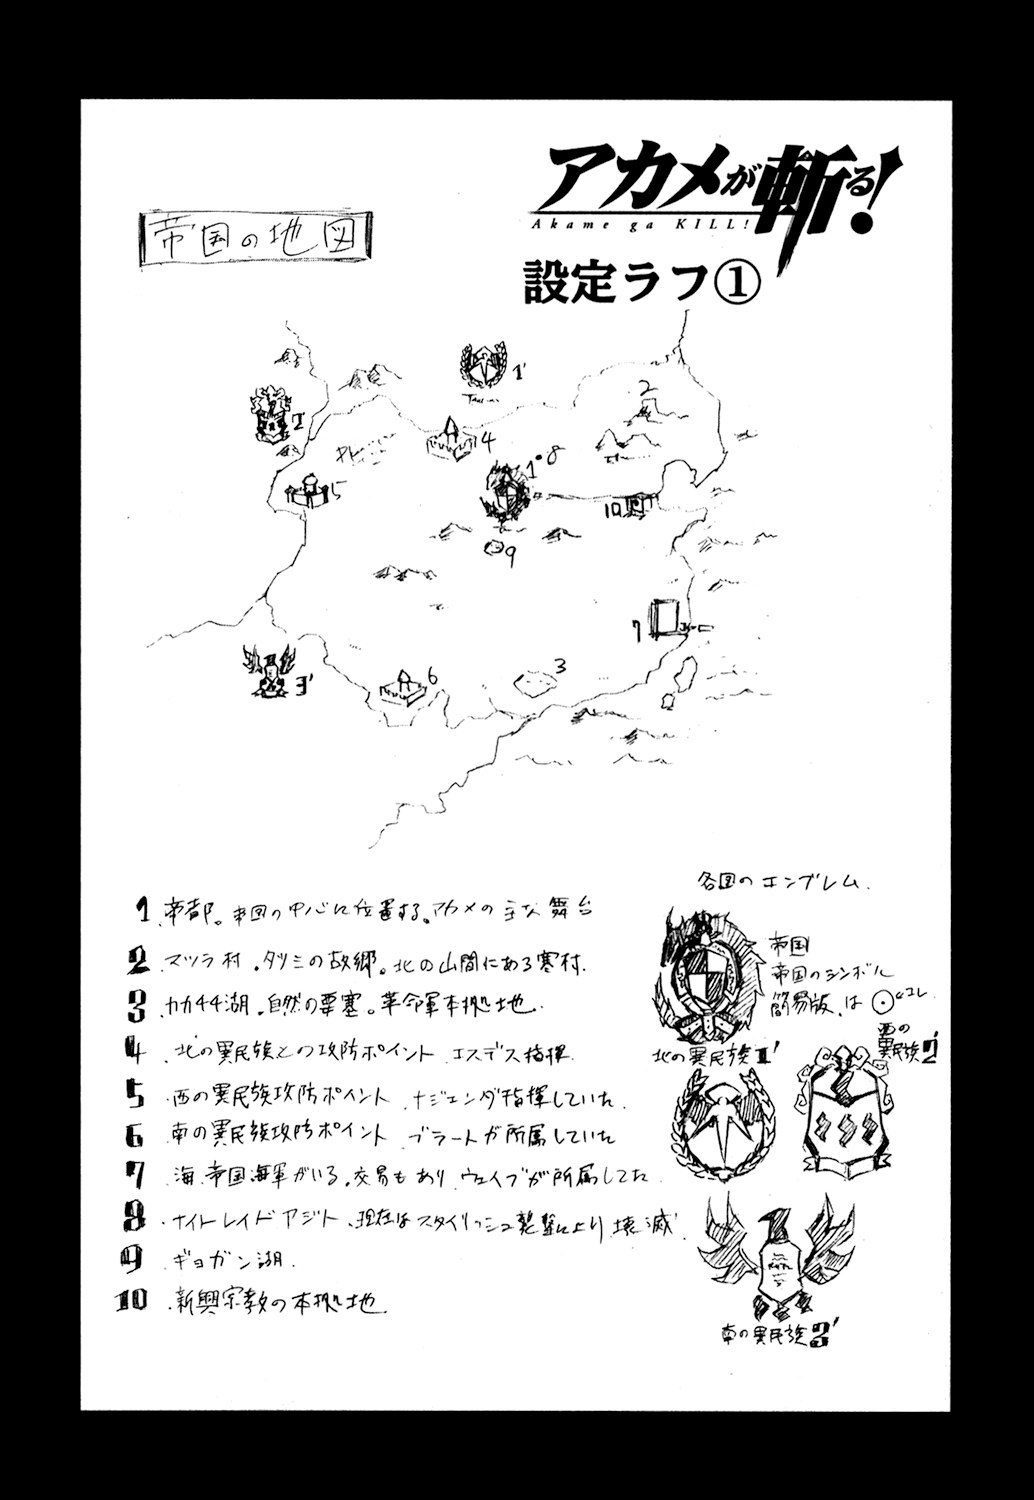 アカメが斬る!
Akame ga KILL!
設定ラフ①
帝国の地図
1'
2'
2
4
1・8
5
10
9
7
3'
6
3
1 帝都。帝国の中心に位置する。アカメの主な舞台
2 マツラ村。タツミの故郷。北の山間にある寒村.
3 カカ44湖。自然の要塞。革命軍本拠地.
4 北の異民族との攻防ポイント エスデス指揮.
5 西の異民族攻防ポイント ナジェンダ指揮していた.
6 南の異民族攻防ポイント ブラートが所属していた
7 海.帝国海軍がいる。交易もあり ウェイブが所属してた.
8 ナイトレイドアジト、現在はスタイリッシュ襲撃により壊滅
9 ギョガン湖.
10 新興宗教の本拠地.
各国のエンブレム.
帝国
帝国のシンボル
簡易版.は ⊙←コレ.
北の異民族1'
西の
異民族2'
南の異民族3'